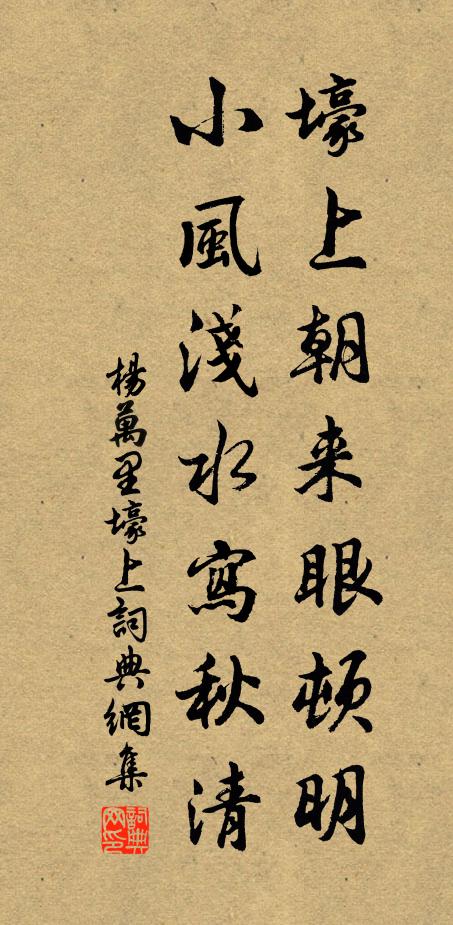 壕上朝来眼頓明
小風淺水寫秋清
楊萬里壕上詞典網集
詞典网印